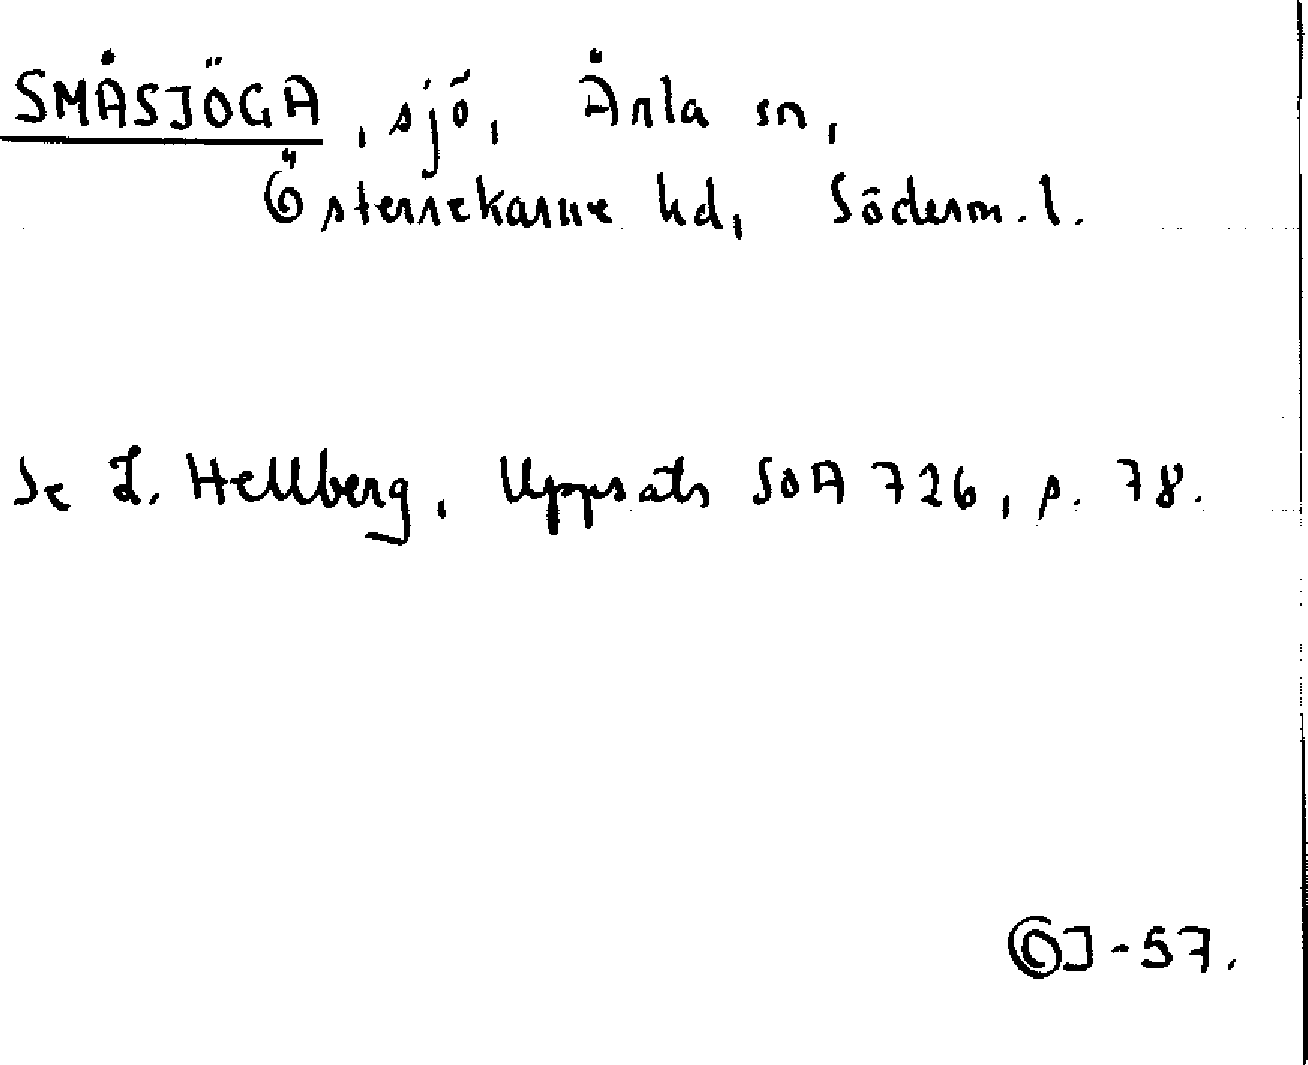 SMÅSJÖGA, sjö, Ärla sn,
Österrekarne hd, Söderm. l.
Se L. Hellberg, Uppsats SOA 726, p. 78.
GJ-57.